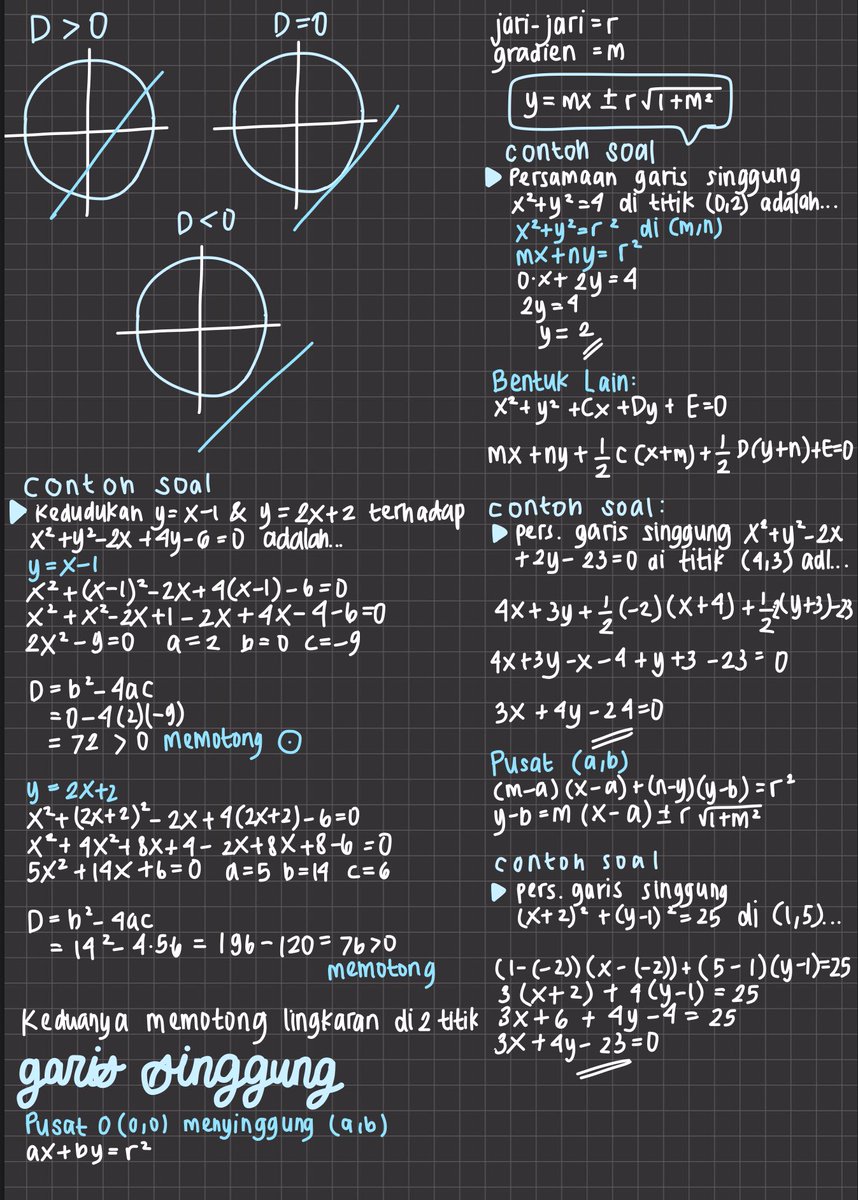 D > 0
D = 0
D < 0
contoh soal
▶ Kedudukan y = x-1 & y = 2x+2 terhadap
x²+y²-2x+4y-6=0 adalah...
y = x-1
x²+(x-1)²-2x+4(x-1)-6=0
x²+x²-2x+1-2x+4x-4-6=0
2x²-9=0 a=2 b=0 c=-9
D = b²-4ac
= 0-4(2)(-9)
= 72 > 0 memotong ⊙
y = 2x+2
x²+(2x+2)²-2x+4(2x+2)-6=0
x²+4x²+8x+4-2x+8x+8-6=0
5x²+14x+6=0 a=5 b=14 c=6
D = b²-4ac
= 14²-4.56 = 196-120 = 76>0
memotong
Keduanya memotong lingkaran di 2 titik
garis singgung
Pusat O(0,0) menyinggung (a,b)
ax+by=r²
jari-jari = r
gradien = m
y = mx ± r√1+m²
contoh soal
▶ Persamaan garis singgung
x²+y²=4 di titik (0,2) adalah...
x²+y²=r² di (m,n)
mx+ny=r²
0·x+2y=4
2y=4
y=2
Bentuk Lain:
x²+y²+Cx+Dy+E=0
mx+ny+1/2 C(x+m)+1/2 D(y+n)+E=0
contoh soal:
▶ pers. garis singgung x²+y²-2x
+2y-23=0 di titik (4,3) adl...
4x+3y+1/2(-2)(x+4)+1/2 2(y+3)-23
4x+3y-x-4+y+3-23=0
3x+4y-24=0
Pusat (a,b)
(m-a)(x-a)+(n-y)(y-b)=r²
y-b=m(x-a)±r√1+m²
contoh soal
▶ pers. garis singgung
(x+2)²+(y-1)²=25 di (1,5)...
(1-(-2))(x-(-2))+(5-1)(y-1)=25
3(x+2)+4(y-1)=25
3x+6+4y-4=25
3x+4y-23=0